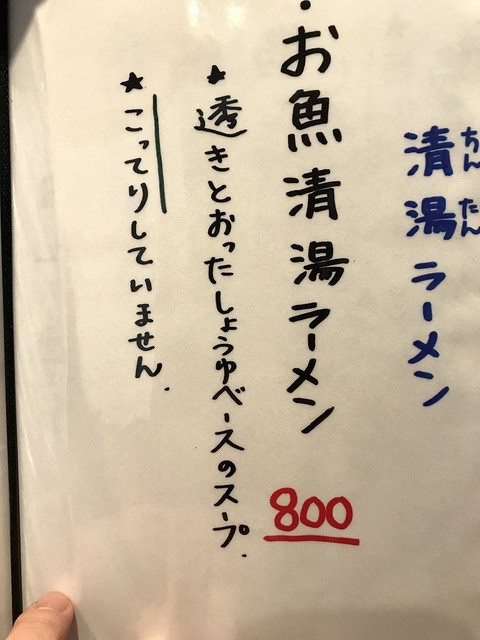 清湯ラーメン
ちんたん
・お魚清湯ラーメン
800
★透きとおったしょうゆベースのスープ.
★こってりしていません.